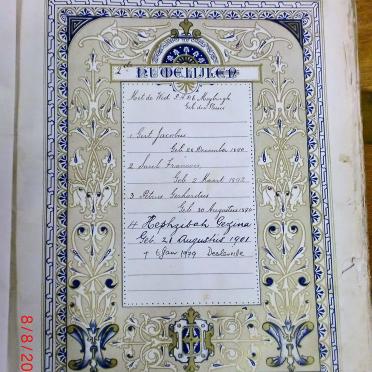 2de HUWELIJKEN
Met de Wed. Myburgh
Geb du Plessis
1 Gert Jacobus
Geb 28 December 1890
2 Francois
Geb 2 Maart 1892
3 Petrus Gerhardus
Geb 30 Augustus
4 Hephzibah Gezina
Geb. 21 Augustus 1901
† 6 Jan 1979
8/8/20